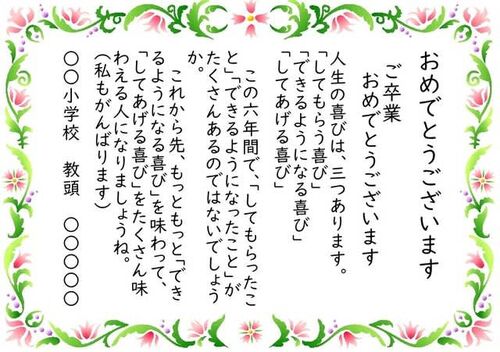 おめでとうございます
ご卒業
おめでとうございます
人生の喜びは、三つあります。
「してもらう喜び」
「できるようになる喜び」
「してあげる喜び」
この六年間で、「してもらったこ
と」、「できるようになったこと」が
たくさんあるのではないでしょう
か。
これから先、もっともっと「でき
るようになる喜び」を味わって、
「してあげる喜び」をたくさん味
わえる人になりましょうね。
（私もがんばります）
〇〇小学校　教頭　〇〇〇〇〇